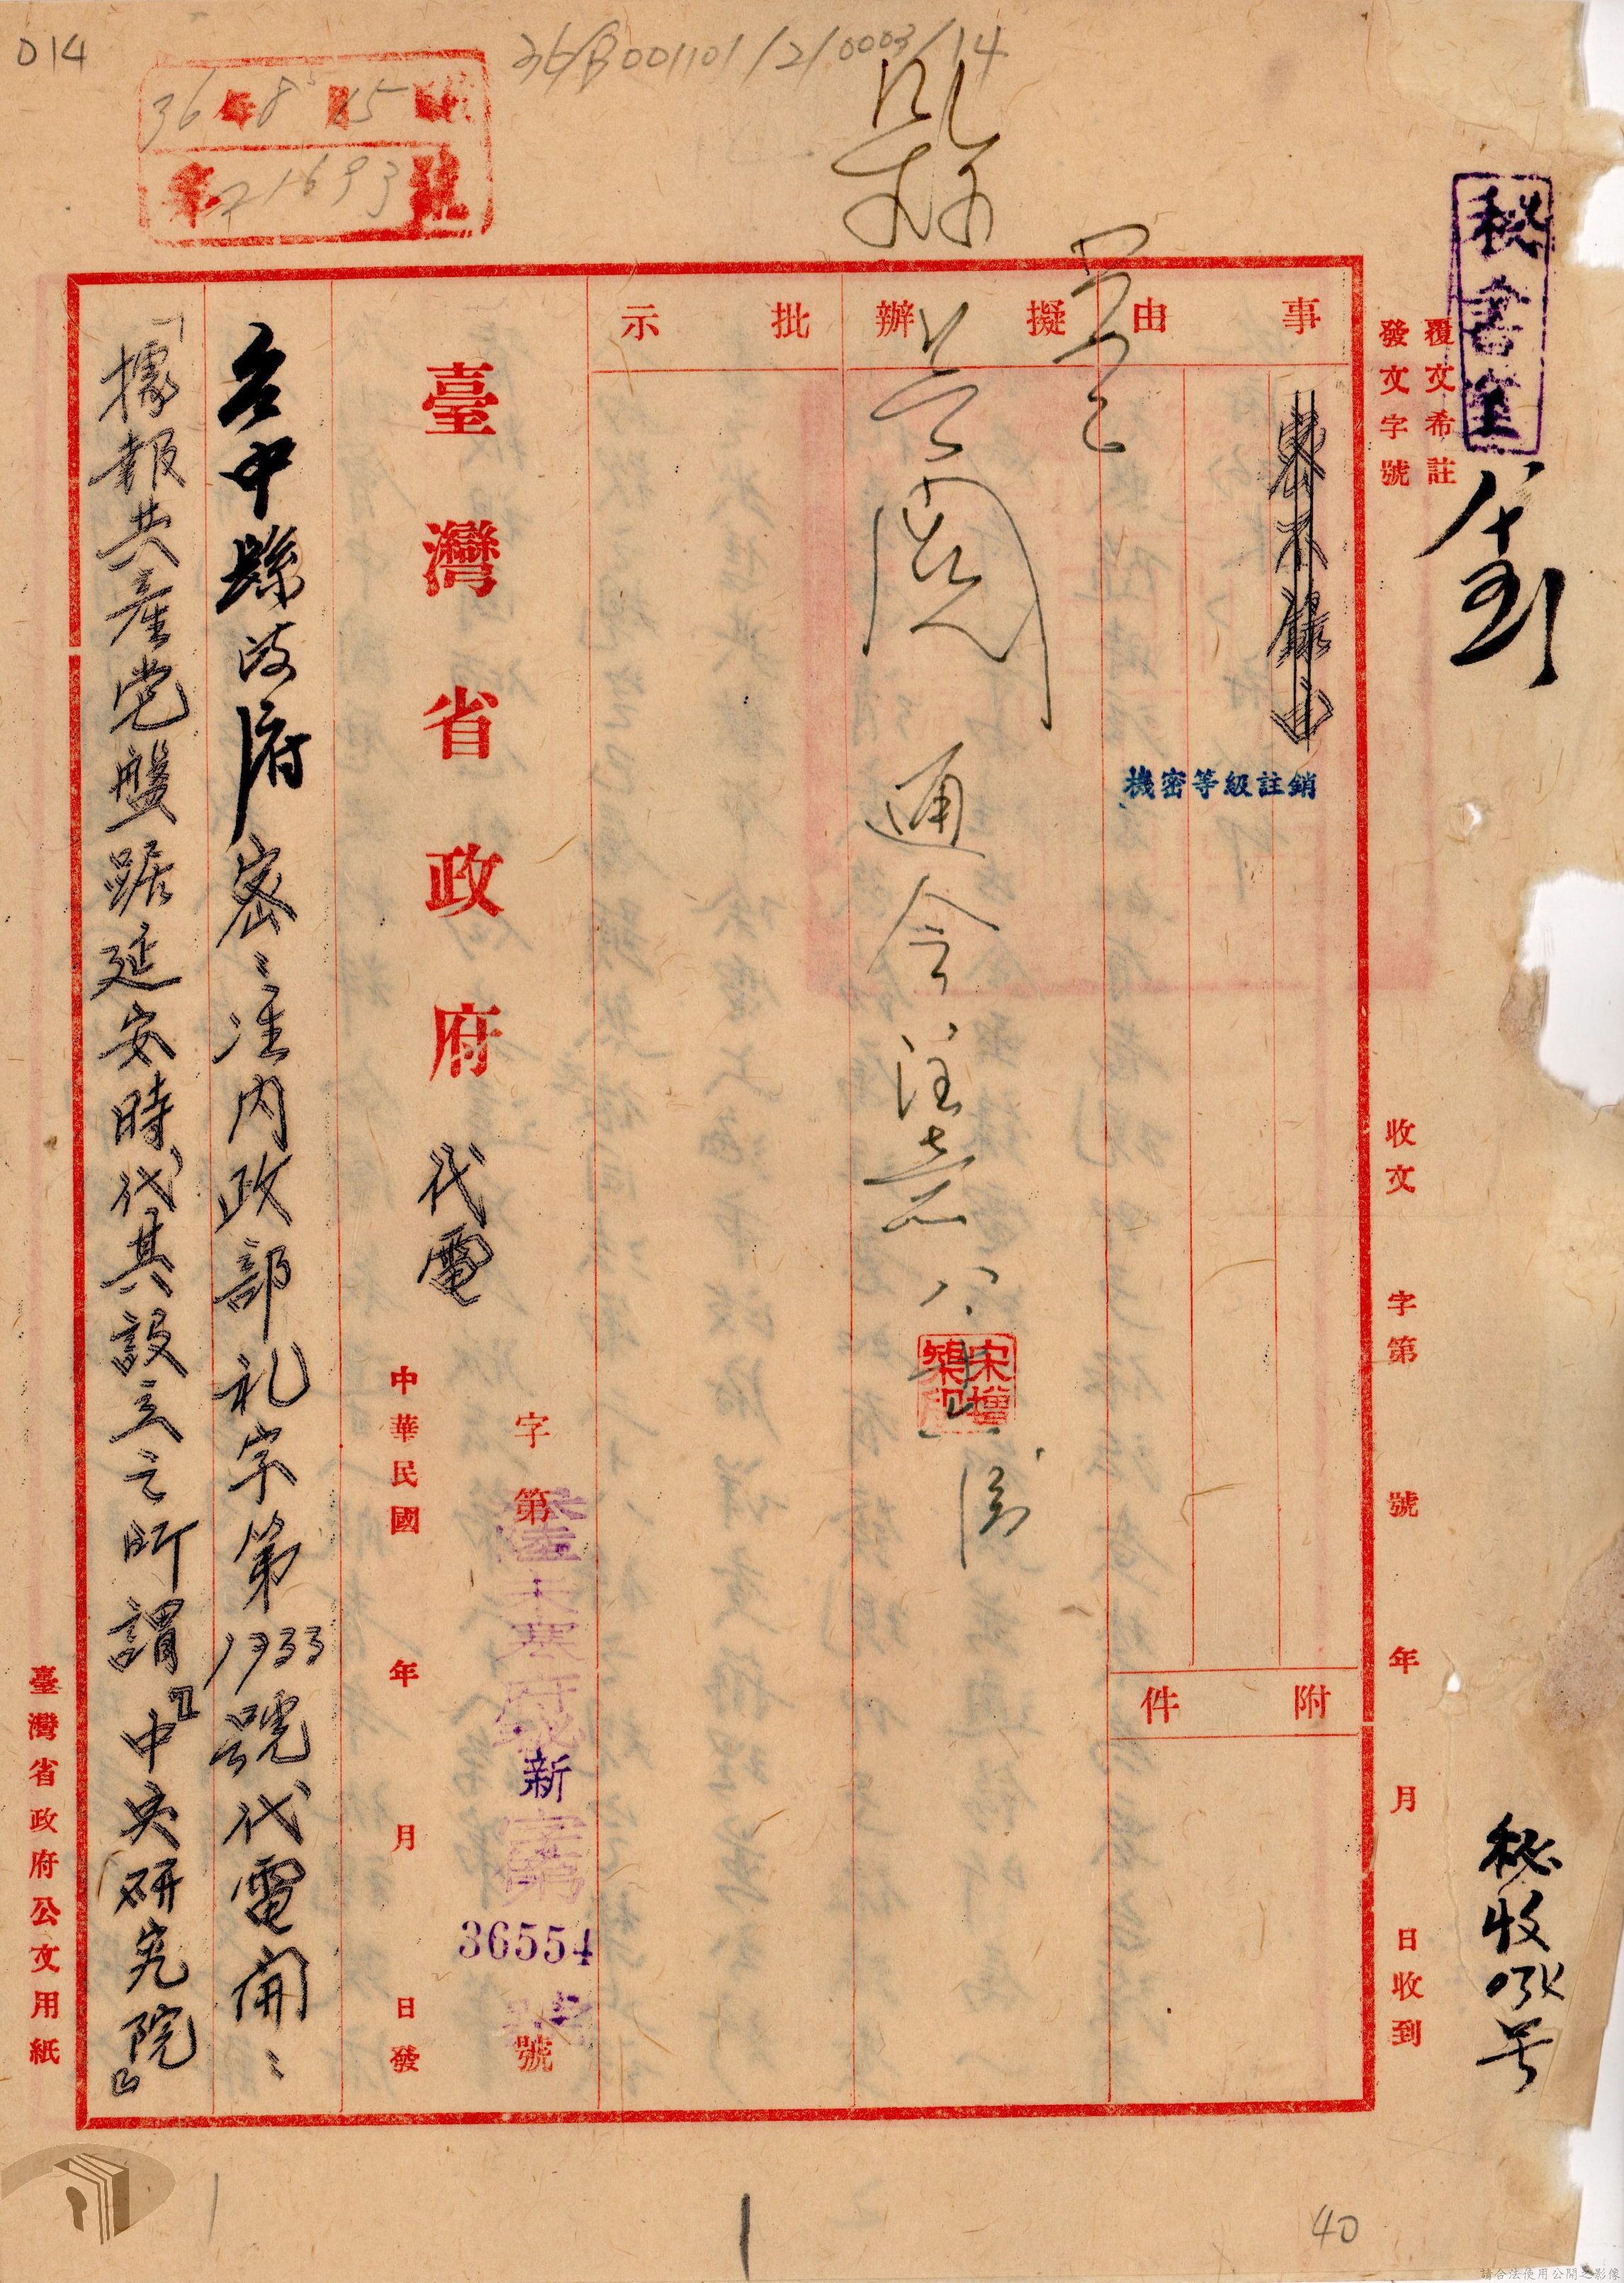 014
36/B001101/2/0003/14
36年8月15
第71693號
秘書室
覆文希註
發文字號
收文 字第 號 年 月 日收到
秘收 号
事由
密不錄由
機密等級註銷
附件
擬辦
通令注意
宋增榘印
批示
臺灣省政府 代電
字第 號
府 新 字第
36554
中華民國 年 月 日發
台中縣政府密：准内政部礼字第1933號代電開：
「據報共產党盤踞延安時代，其設立之所謂『中央研究院』
臺灣省政府公文用紙
40
請合法使用公開之影像